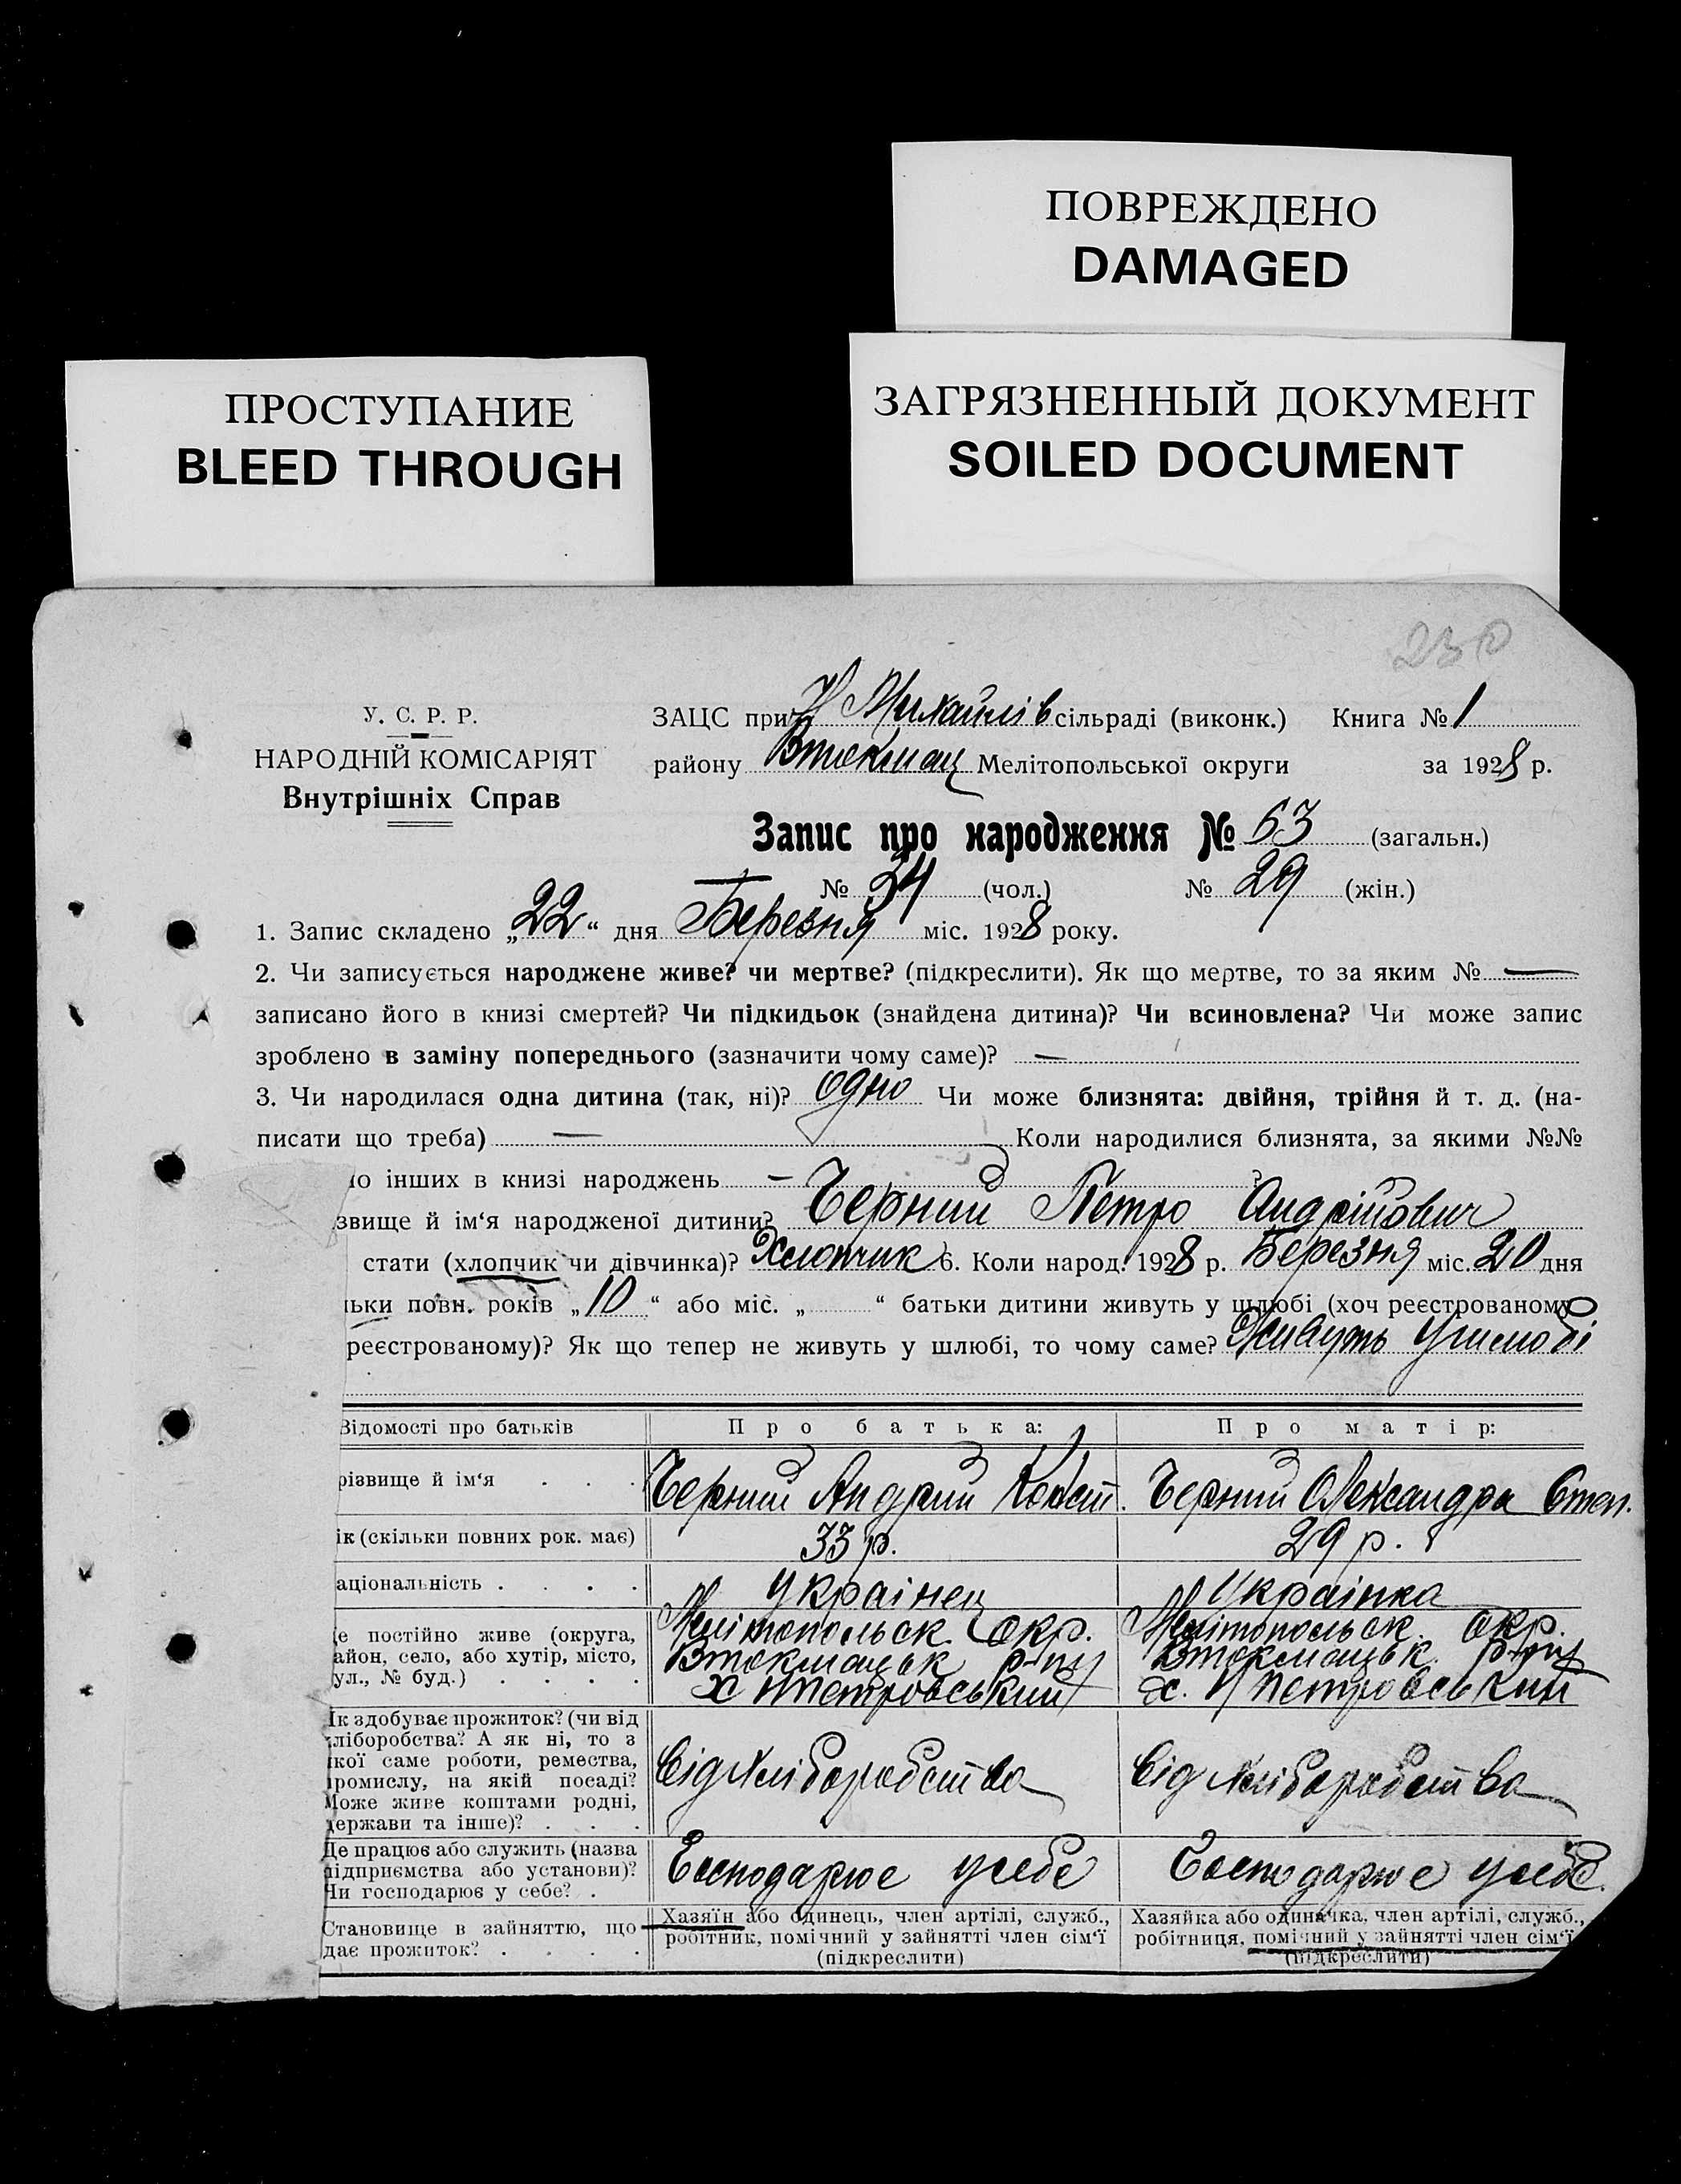 ПОВРЕЖДЕНО
DAMAGED
ПРОСТУПАНИЕ
BLEED THROUGH
ЗАГРЯЗНЕННЫЙ ДОКУМЕНТ
SOILED DOCUMENT
230
У. С. Р. Р.
НАРОДНІЙ КОМІСАРІЯТ
Внутрішніх Справ
ЗАЦС при Н Михайлів сільраді (виконк.) Книга № 1
району Втокмац Мелітопольської округи за 1928 р.
Запис про народження № 63 (загальн.)
№ 34 (чол.) № 29 (жін.)
1. Запис складено „22“ дня Березня міс. 1928 року.
2. Чи записується народжене живе? чи мертве? (підкреслити). Як що мертве, то за яким № —
записано його в книзі смертей? Чи підкидьок (знайдена дитина)? Чи всиновлена? Чи може запис
зроблено в заміну попереднього (зазначити чому саме)? —
3. Чи народилася одна дитина (так, ні)? одно Чи може близнята: двійня, трійня й т. д. (на-
писати що треба) — Коли народилися близнята, за якими №№
но інших в книзі народжень — ?
звище й ім‘я народженої дитини? Черний Петро Андрійович
стати (хлопчик чи дівчинка)? Хлопчик 6. Коли народ. 1928 р. Березня міс. 20 дня
ьки повн. років „10“ або міс. „ “ батьки дитини живуть у шлюбі (хоч реєстрованому
реєстрованому)? Як що тепер не живуть у шлюбі, то чому саме? Живуть у шлюбі
Відомості про батьків Про батька: Про матір:
різвище й ім‘я . . . Черний Андрий Конст. Черний Олександра Степ.
ік (скільки повних рок. має) 33 р. 29 р.
аціональність . . . . Українец Українка
е постійно живе (округа,
айон, село, або хутір, місто,
ул., № буд.) . . . .
Мелітопольск. Окр.
Втокмацьк р-ну
х Петровський
Мелітопольск. Окр.
Втокмацьк. р-ну
х. Петровський
Як здобуває прожиток? (чи від
хліборобства? А як ні, то з
якої саме роботи, ремества,
промислу, на якій посаді?
Може живе коштами родні,
держави та інше)? . . .
Від хліборобства
Від хліборобства
Де працює або служить (назва
підприємства або установи)?
Чи господарює у себе? .
Господарює усебе
Господарює усебе.
Становище в зайняттю, що
дає прожиток? . . . .
Хазяїн або одинець, член артілі, служб.,
робітник, помічний у зайнятті член сім‘ї
(підкреслити)
Хазяйка або одиначка, член артілі, служб.,
робітниця, помічний у зайнятті член сім‘ї
(підкреслити)